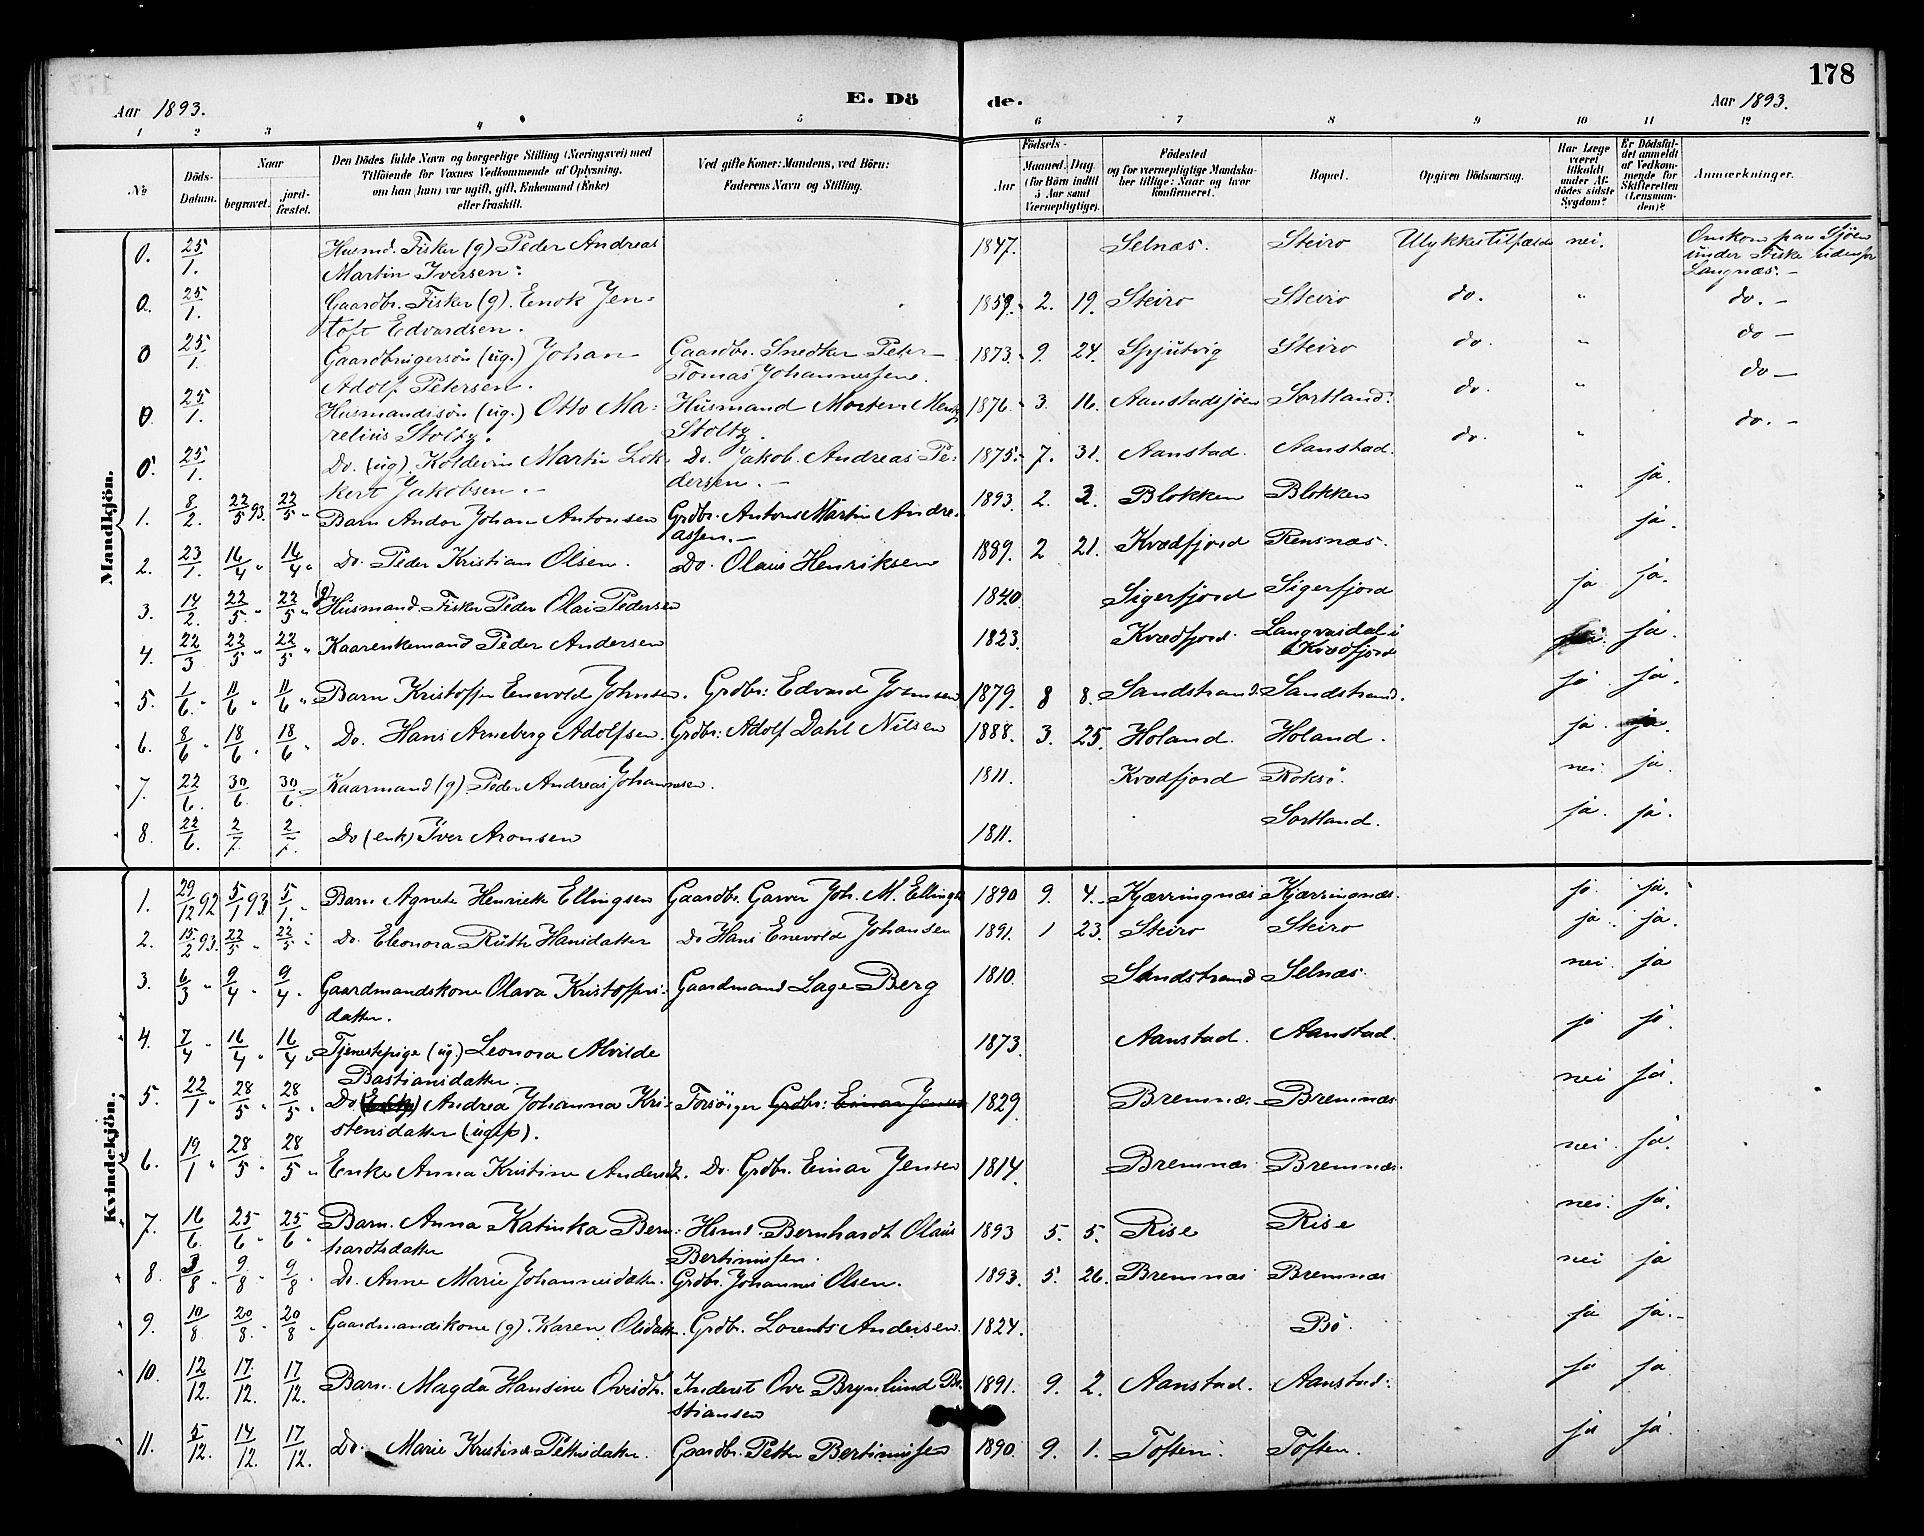 178
Aar 1893. E. Dö de. Aar 1893.
1 2 3 4 5 6 7 8 9 10 11 12
No Döds-Datum. Naar begravet. jord-fæstet. Den Dödes fulde Navn og borgerlige Stilling (Næringsvei) med Tilföiende for Voxnes Vedkommende af Oplysning, om han (hun) var ugift, gift, Enkemand (Enke) eller fraskilt. Ved gifte Koner: Mandens, ved Börn: Faderens Navn og Stilling. Födsels- Aar Maaned. Dag. (for Börn indtil 5 Aar samt Værnepligtige). Födested og for værnepligtige Mandskaber tillige: Naar og hvor konfirmeret. Bopæl. Opgiven Dödsaarsag. Har Læge været tilkaldt under Afdödes sidste Sygdom? Er Dödsfaldet anmeldt af Vedkommende for Skifteretten (Lensmanden)? Anmærkninger.
Mandkjön.
0. 25/1. Husmd. Fisker (g) Peder Andreas Martin Iversen. 1847. Selnæs. Steiro Ulykkestilfælde nei. Omkom paa Sjöen under Fiske udenfor Langnæs. -
0. 25/1. Gaardbr. Fisker (g). Enok Jentoft Edvardsen. 1859. 2. 19. Steiro Steiro do. " do. -
0 25/1. Gaardbrugersön (ug.) Johan Adolf Petersen. Gaardbr. Snedker Peter Tomas Johannessen. 1873. 9. 24. Spjutvig Steiro do. " do -
0. 25/1. Husmandssön (ug.) Otto Marelius Stoltz. Husmand Morten Mentz Stoltz. 1876. 3. 16. Aanstadsjöen Sortland. do. " do -
0. 25/1. Do. (ug) Koldevin Martin Lokkert Jakobsen. - Do. Jakob Andreas Pedersen. - 1875. 7. 31. Aanstad. Aanstad. do. " do. -
1. 8/2. 22/5 93. 22/5 " Barn Andor Johan Antonsen Grdbr. Antons Martin Andreassen. - 1893. 2. 2. Blokken Blokken " ja.
2. 23/1. 16/4 " 16/4 " Do. Peder Kristian Olsen. Do. Olaus Henriksen 1889. 2 21. Kvædfjord Rensnæs. ja.
3. 14/2. 22/5. " 22/5 " (g) Husmand. Fisker Peder Olai Pedersen 1840 Sigerfjord Sigerfjord ja ja.
4. 22/3 22/5 " 22/5 " Kaarenkemand Peder Andersen 1823. Kvædfjord. Langvasdal i Kvædfjord ja.
5. 1/6. " 11/6 " 11/6 " Barn Kristoffer Enevold Johnsen. Grdbr: Edvard Johnsen 1879. 8 8. Sandstrand. Sandstrand. ja ja.
6. 8/6 " 18/6 " 18/6 " Do. Hans Arneberg Adolfsen. Grdbr: Adolf Dahl Nilsen 1888. 3. 25. Holand. Holand. ja. ja.
7. 22/6. 30/6. 30/6. Kaarmand (g). Peder Andreas Johannesen. 1811. Kvædfjord Roksö. nei. ja.
8. 22/6. 2/7. 2/7. Do (enk) Iver Aronsen 1811. Sortland. ja. ja.
Kvindekjön.
1. 29/12 92 5/1 93 5/1. Barn Agnete Henrikke Ellingsen Gaardbr. Garver Joh. M. Ellingsen 1890 9. 4. Kjærringnæs Kjærringnæs. ja. ja.
2. 15/2 93. 22/5 " 22/5 " Do. Eleonora Ruth Hansdatter Do Hans Enevold Johansen 1891. 1 23. Steiro Steiro ja. ja.
3. 6/3 " 9/4 " 9/4 " Gaardmandskone Olava Kristoffersdatter. Gaardmand Lage Berg 1810. Sandstrand Selnæs. nei. ja
4. 7/4 " 16/4 " 16/4 " Tjenestepige (ug.) Leonora Alvilde Bastiansdatter. 1873. Aanstad. Aanstad. ja ja.
5. 22/1 " 28/5 " 28/5 " Do (Enke) Andrea Johanna Kristensdatter (ugift). Forsörger Grdbr: Einar Jensen 1829. Bremnæs Bremnæs nei ja.
6. 19/1 " 28/5 " 28/5 " Enke Anna Kristine Andersdt. Do. Grdbr. Einar Jensen 1814. Bremnæs Bremnæs. nei. ja.
7. 16/6. 25/6 " 25/6 " Barn. Anna Katinka Bernhardtsdatter Hsmd. Bernhardt Olaus Bertinussen. 1893 5. 5. Rise Rise nei. ja.
8. 3/8 " 9/8 " 9/8 " Do. Anne Marie Johannesdatter. Grdbr. Johannes Olsen. 1893. 5. 26. Bremnæs Bremnæs nei ja
9. 10/8. 20/8. " 20/8 " Gaardmandskone (g). Karen Olsdatter. Grdbr. Lorents Andersen. 1824. Bö. ja ja. -
10. 12/12. 17/12. 17/12. Barn. Magda Hansine Ovesdt. Inderst Ove Brynlund Bastiansen 1891. 9. 2. Aanstad. Aanstad. ja ja
11. 5/12. 14/12. 17/12. Do. Marie Kristine Pettersdatter. Gaardbr. Petter Bertinussen 1890. 9. 1. Toften. Toften. ja ja.